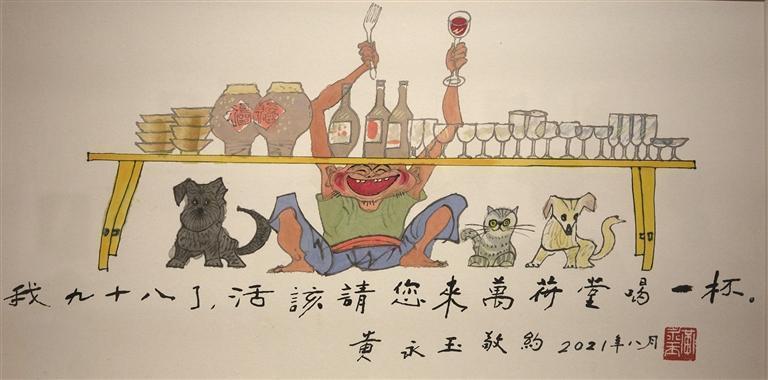 酒 福
我九十八了，活該請您來萬荷堂喝一杯。
黃永玉敬約 2021年八月